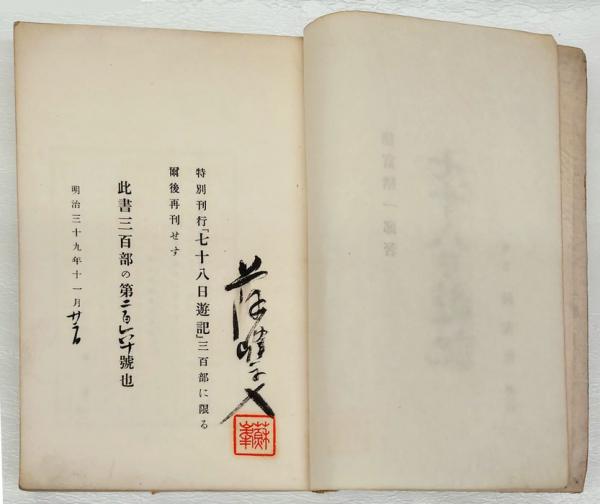 蘇峰学人
蘇峯
特別刊行「七十八日遊記」三百部に限る
爾後再刊せす
此書三百部の第二百六十號也
明治三十九年十一月